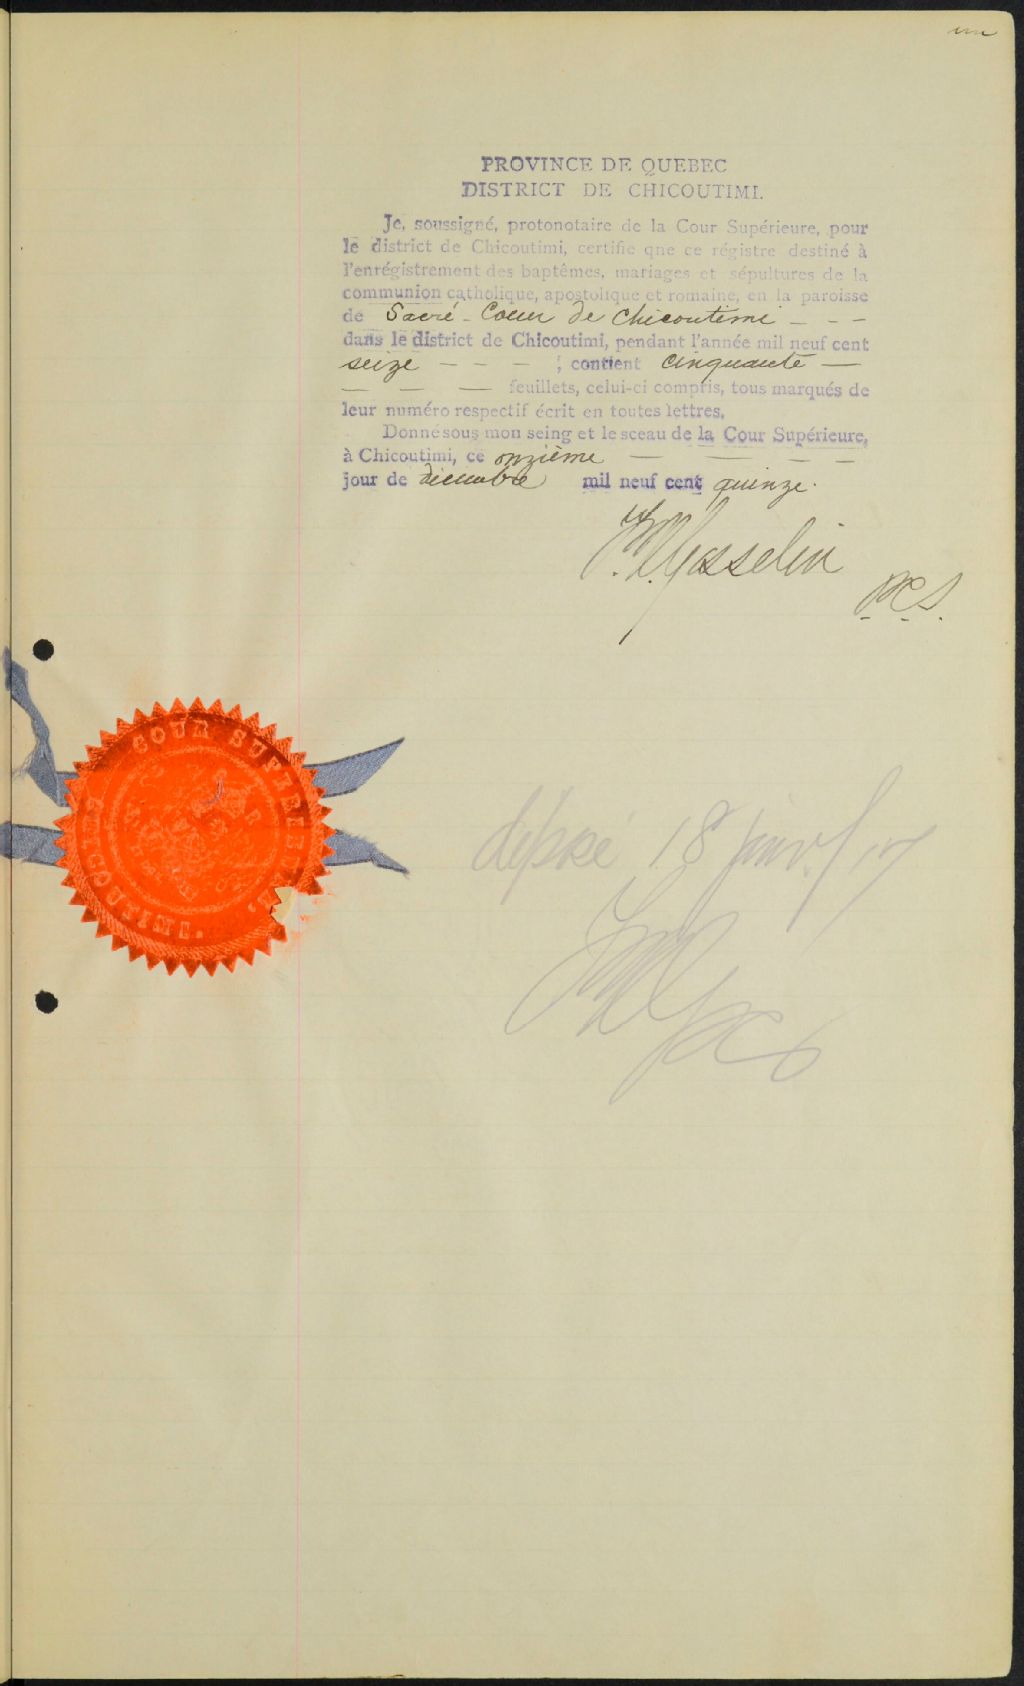 un
PROVINCE DE QUEBEC
DISTRICT DE CHICOUTIMI.
Je, soussigné, protonotaire de la Cour Supérieure, pour
le district de Chicoutimi, certifie qne ce régistre destiné à
l'enrégistrement des baptêmes, mariages et sépultures de la
communion catholique, apostolique et romaine, en la paroisse
de Sacré-Coeur de Chicoutimi - - -
dans le district de Chicoutimi, pendant l'année mil neuf cent
seize - - - ; contient cinquante —
— — — feuillets, celui-ci compris, tous marqués de
leur numéro respectif écrit en toutes lettres.
Donné sous mon seing et le sceau de la Cour Supérieure,
à Chicoutimi, ce onzième — — — —
jour de décembre mil neuf cent quinze.
Gosselin
P.C.S.
COUR SUPERIEURE
CHICOUTIMI.
déposé 18 janv/17